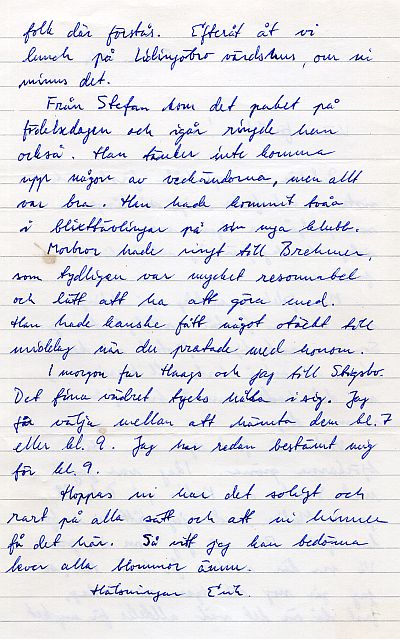 folk där förstås. Efteråt åt vi
lunch på Lidingöbro värdshus, om ni
minns det.
Från Stefan kom det paket på
födelsedagen och igår ringde han
också. Han tänker inte komma
upp någon av veckändorna, men allt
var bra. Han hade kommit tvåa
i blixttävlingar på sin nya klubb.
Morbror hade ringt till Brehmer,
som tydligen var mycket resonnabel
och lätt att ha att göra med.
Han hade kanske fått något otäckt till
middag när du pratade med honom.
I morgon far Haags och jag till
Det fina vädret tycks hålla i sig. Jag
får välja mellan att hämta dem kl. 7
eller kl. 9. Jag har redan bestämt mig
för kl. 9.
Hoppas ni har det soligt och
rart på alla sätt och att ni hinner
få det här. Så vitt jag kan bedöma
lever alla blommor ännu.
Hälsningar Erik